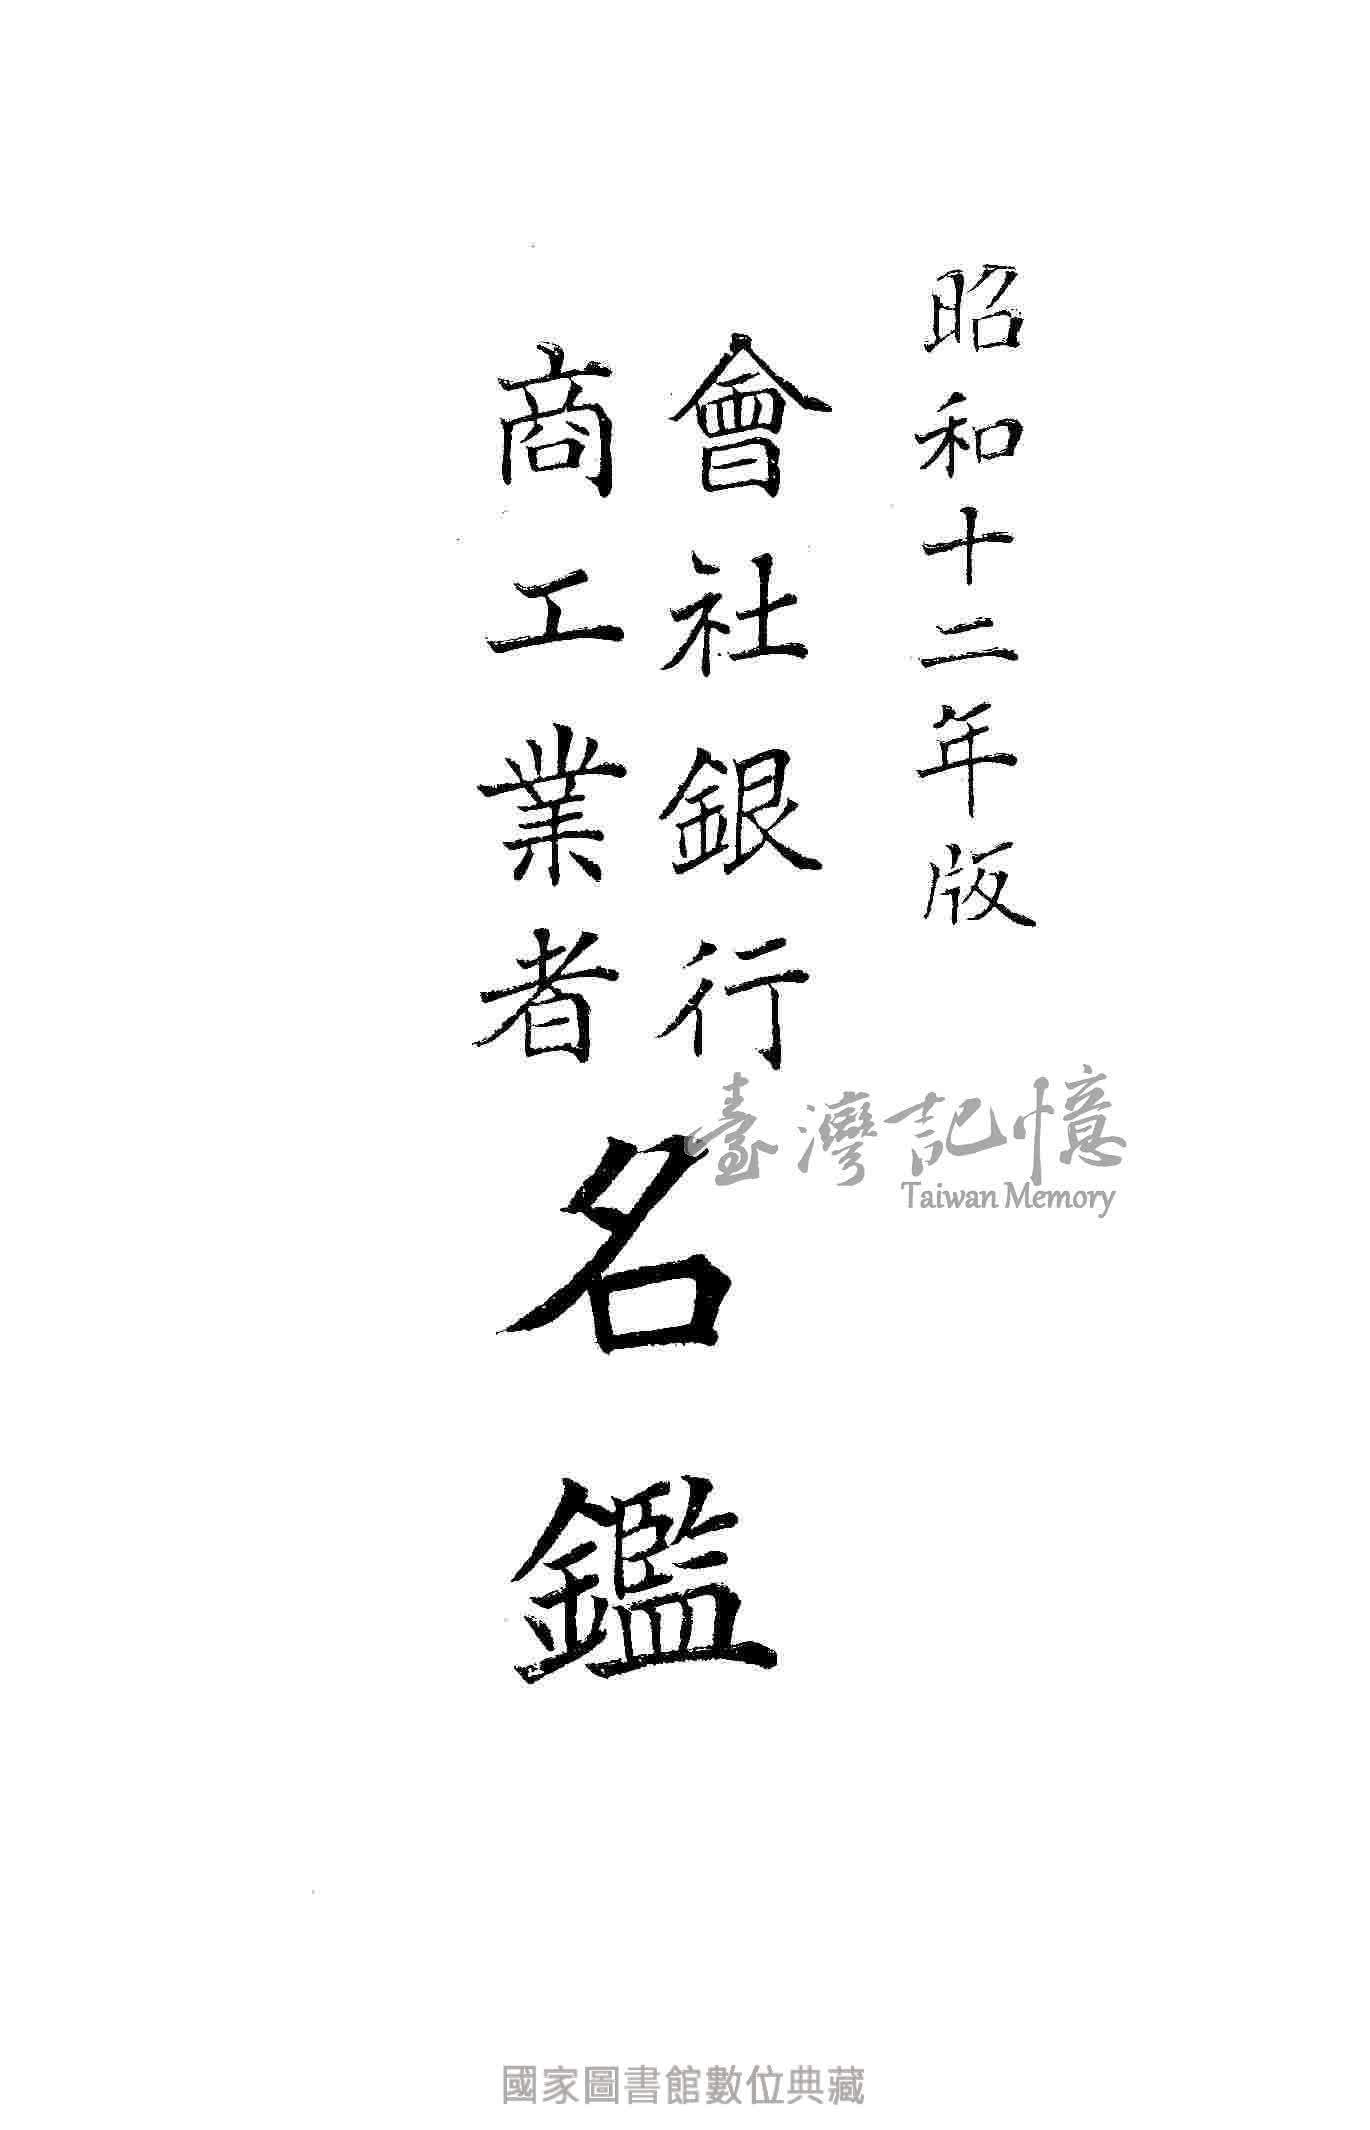 昭和十二年版
會社銀行
商工業者
名鑑
臺灣記憶
Taiwan Memory
國家圖書館數位典藏